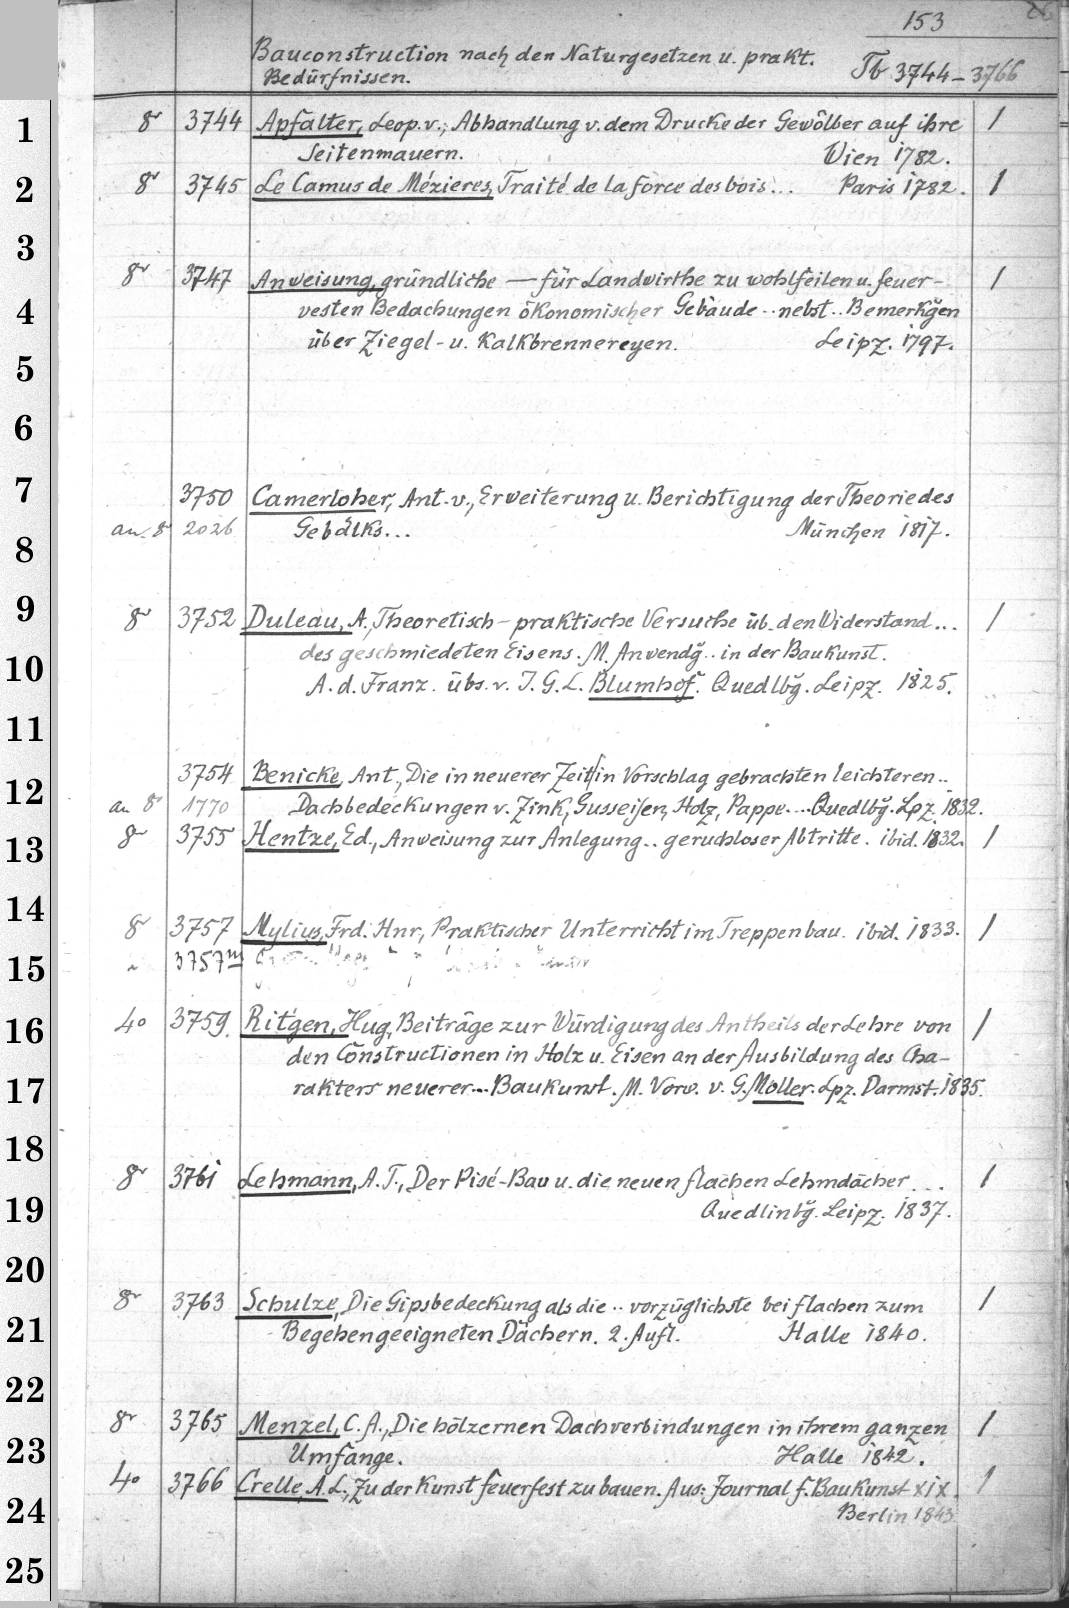 153
Bauconstruction nach den Naturgesetzen u. prakt.
Bedürfnissen.
Tb 3744-3766
1
8r 3744 Apfalter, Leop. v., Abhandlung v. dem Drucke der Gewölber auf ihre 1
Seitenmauern. Wien 1782.
2
8r 3745 Le Camus de Mézieres, Traité de la force des bois... Paris 1782. 1
3
8r 3747 Anweisung, gründliche — für Landwirthe zu wohlfeilen u. feuer- 1
4
vesten Bedachungen ökonomischer Gebäude .. nebst .. Bemerkgen
über Ziegel- u. Kalkbrennereyen. Leipz. 1797.
5
6
7
3750 Camerloher, Ant. v., Erweiterung u. Berichtigung der Theorie des
an. 8 2026 Gebälks... München 1817.
8
9
8r 3752 Duleau, A., Theoretisch-praktische Versuche üb. den Widerstand... 1
des geschmiedeten Eisens. M. Anwendg .. in der Baukunst.
10
A. d. Franz. übs. v. J. G. L. Blumhof. Quedlbg. Leipz. 1825.
11
3754 Benicke, Ant., Die in neuerer Zeit in Vorschlag gebrachten leichteren ..
12
an 8r 1770 Dachbedeckungen v. Zink, Gusseisen, Holz, Pappe.... Quedlbg. Lpz. 1832.
8r 3755 Hentze, Ed., Anweisung zur Anlegung .. geruchloser Abtritte. ibid. 1832. 1
13
14
8r 3757 Mylius, Frd. Hnr., Praktischer Unterricht im Treppenbau. ibid. 1833. 1
15
3757m
16
4o 3759. Ritgen, Hug., Beiträge zur Würdigung des Antheils der Lehre von 1
den Constructionen in Holz u. Eisen an der Ausbildung des Cha-
17
rakters neuerer... Baukunst. M. Vorw. v. G. Moller. Lpz. Darmst. 1835.
18
8r 3761 Lehmann, A. T., Der Pisé-Bau u. die neuen flachen Lehmdächer... 1
19
Quedlinbg. Leipz. 1837.
20
8r 3763 Schulze, Die Gipsbedeckung als die .. vorzüglichste bei flachen zum 1
21
Begehen geeigneten Dächern. 2. Aufl. Halle 1840.
22
8r 3765 Menzel, C. A., Die hölzernen Dachverbindungen in ihrem ganzen 1
23
Umfange. Halle 1842.
4o 3766 Crelle, A. L., Zu der Kunst feuerfest zu bauen. Aus: Journal f. Baukunst XIX. 1
24
Berlin 1843.
25